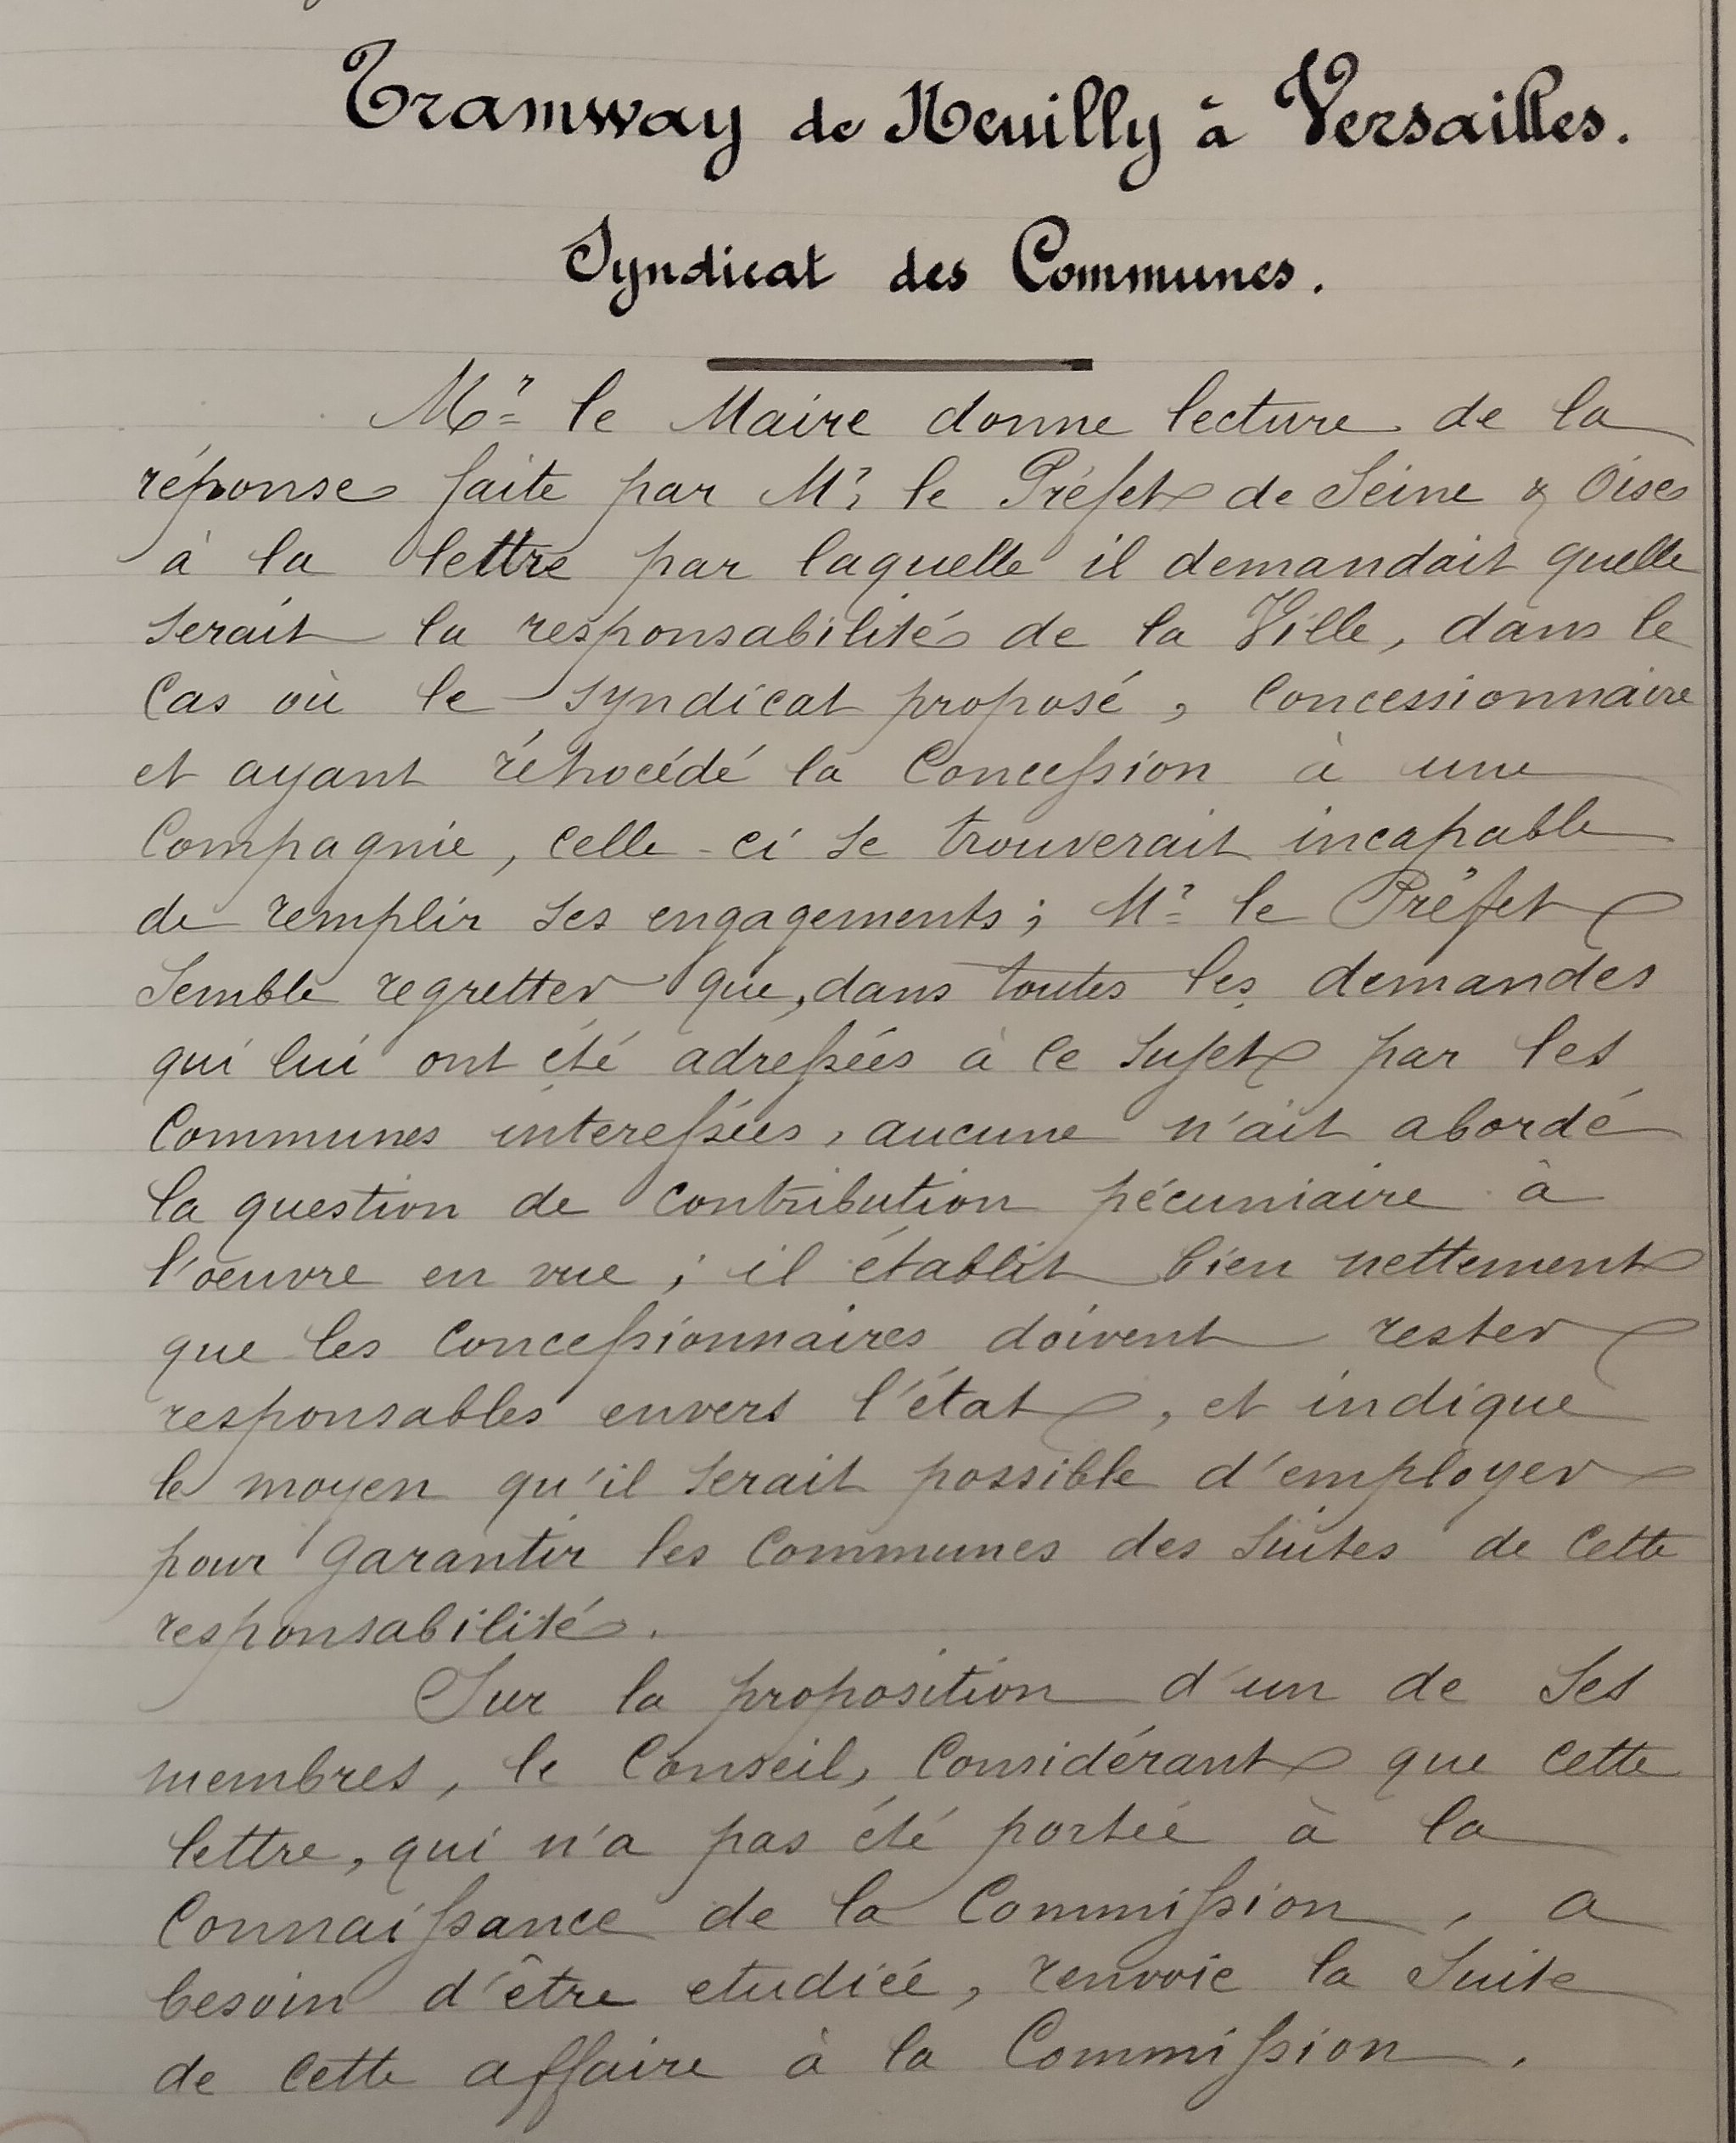 Tramway de Neuilly à Versailles.
Syndicat des Communes.
Mr le Maire donne lecture de la
réponse faite par Mr le Préfet de Seine & Oise
à la lettre par laquelle il demandait quelle
serait la responsabilité de la Ville, dans le
Cas où le syndicat proposé, Concessionnaire
et ayant rétrocédé la Concession à une
Compagnie, celle-ci se trouverait incapable
de remplir ses engagements; Mr le Préfet
semble regretter que, dans toutes les demandes
qui lui ont été adressées à ce sujet par les
Communes interessées, aucune n'ait abordé
la question de contribution pécuniaire à
l'oeuvre en vue; il établit bien nettement
que les Concessionnaires doivent rester
responsables envers l'état, et indique
le moyen qu'il serait possible d'employer
pour garantir les Communes des suites de cette
responsabilité.
Sur la proposition d'un de ses
membres, le Conseil, Considérant que cette
lettre, qui n'a pas été portée à la
Connaissance de la Commission, a
besoin d'être etudiée, renvoie la suite
de cette affaire à la Commission.